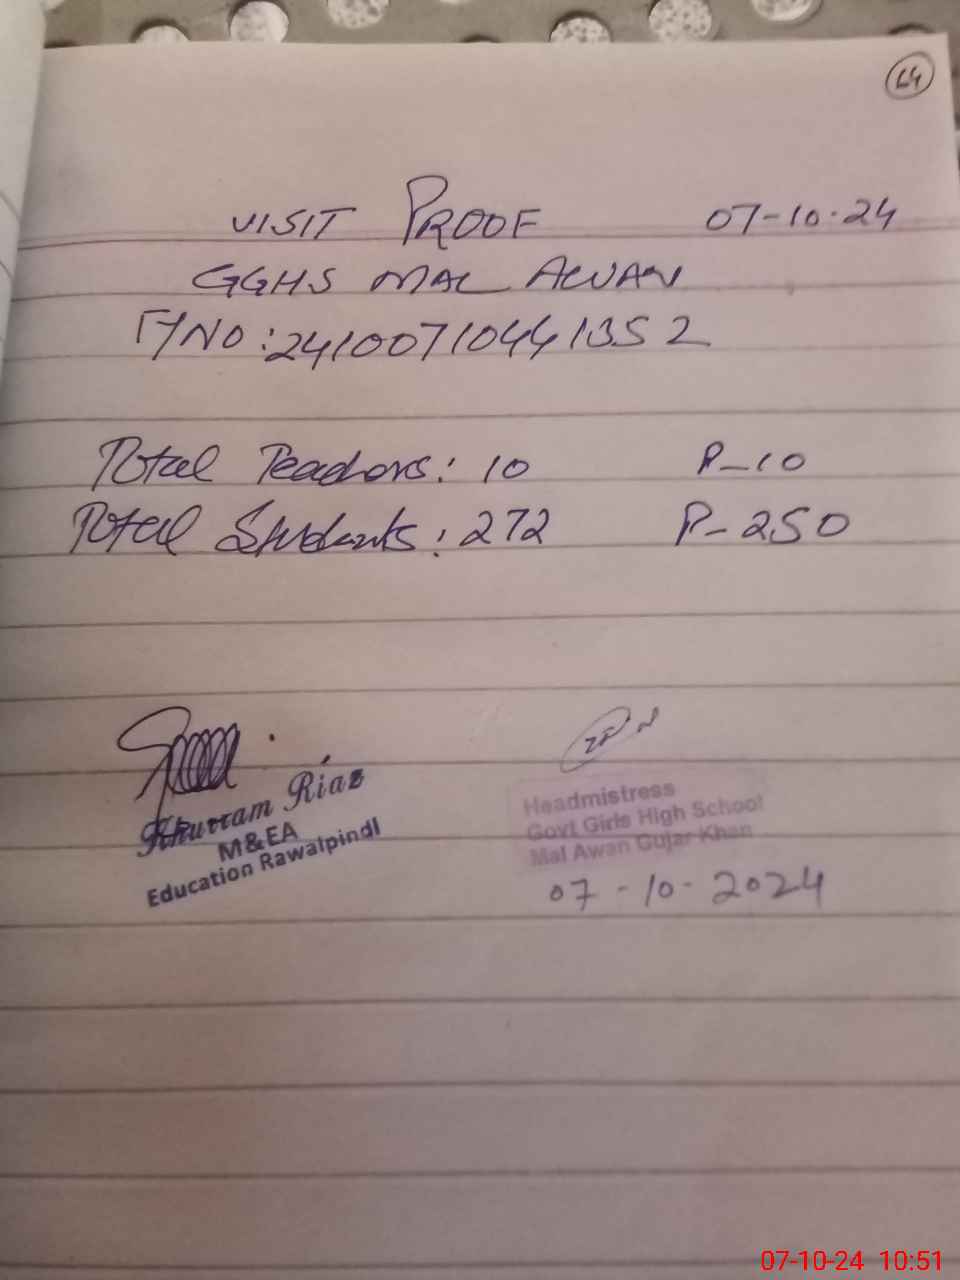 64
VISIT PROOF 07-10-24
GGHS MAL AWAN
T/NO: 241007104441352
Total Teachers: 10 P-10
Total Students: 272 P-250
Khurram Riaz
M&EA
Education Rawalpindi
Headmistress
Govt Girls High School
Mal Awan Gujar Khan
07-10-2024
07-10-24 10:51